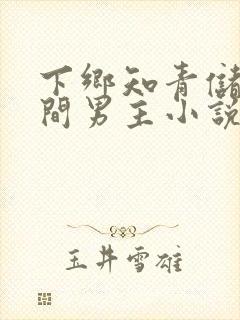 下鄉知青儲
間男主小說
玉井雪雄